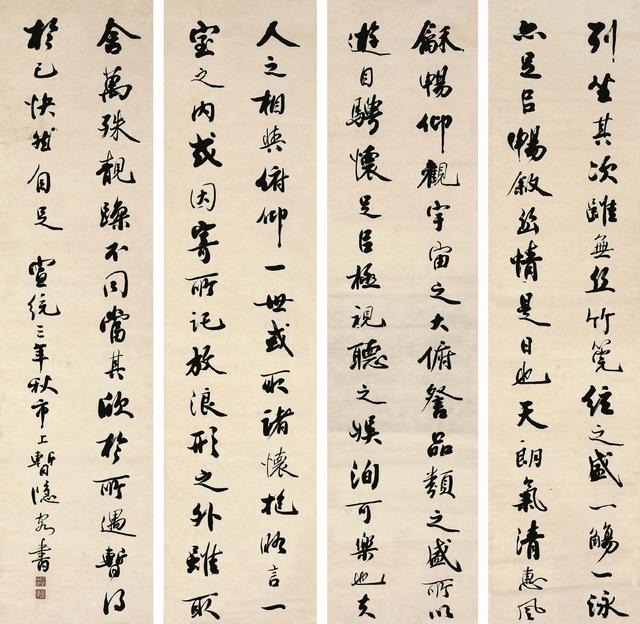 列坐其次雖無丝竹筦絃之盛一觴一詠
亦足以暢敘幽情是日也天朗氣清惠風
龢暢仰觀宇宙之大俯詧品類之盛所以
遊目騁懷足以極視聽之娛洵可樂也夫
人之相與俯仰一世或取諸懷抱晤言一
室之內或因寄所託放浪形之外雖取
舍萬殊靚躁不同當其欣於所遇暫得
於己快然自足 宣統三年秋市上暫隱客書